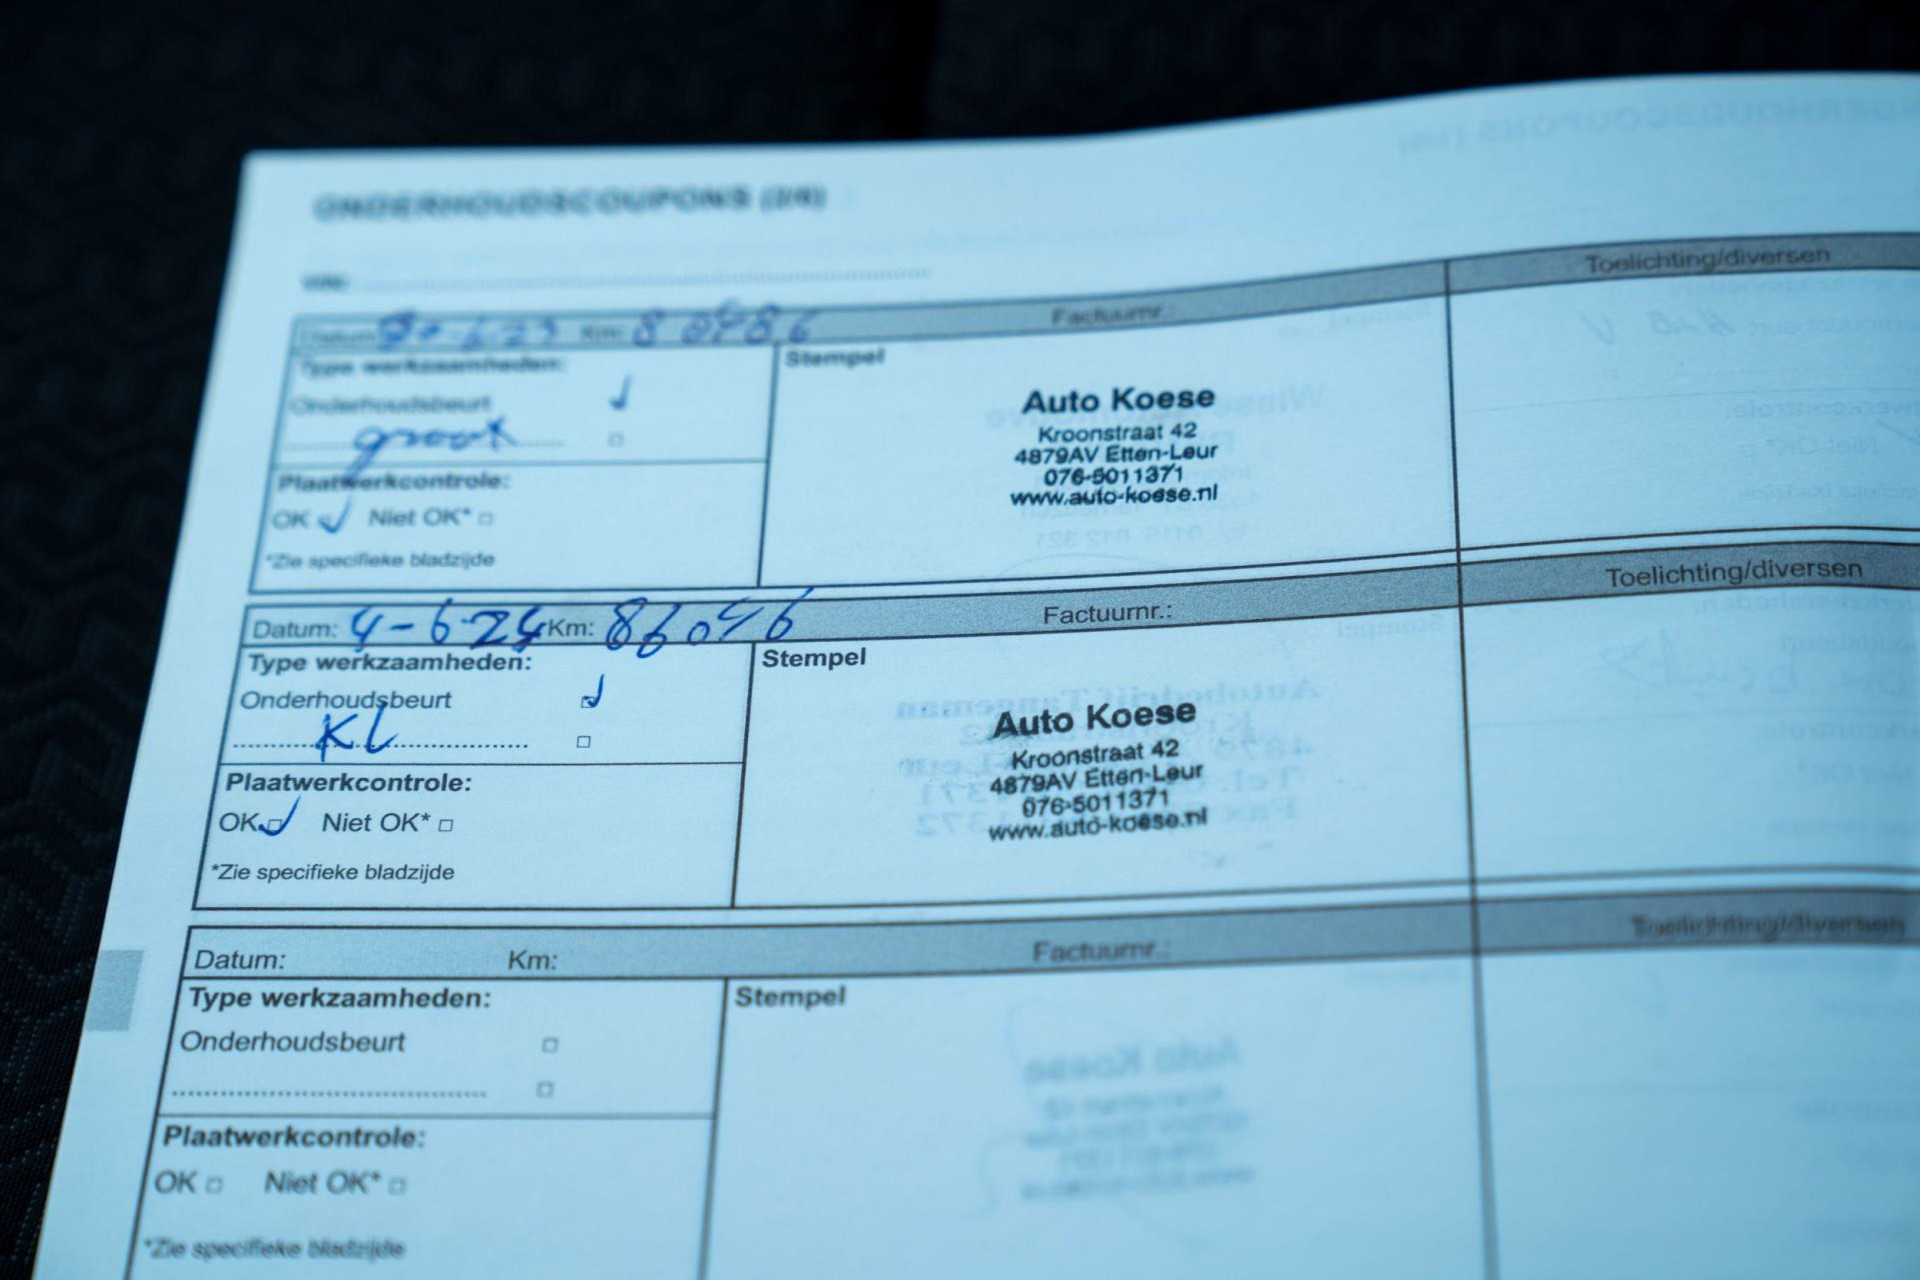 ONDERHOUDSCOUPONS (2/6)
VIN:
Datum: Km: 80486 Factuurnr.: Toelichting/diversen
Type werkzaamheden: Stempel
Onderhoudsbeurt
groot
Plaatwerkcontrole:
OK Niet OK*
*Zie specifieke bladzijde
Auto Koese
Kroonstraat 42
4879AV Etten-Leur
076-5011371
www.auto-koese.nl
Datum: 4-6-24 Km: 86046 Factuurnr.: Toelichting/diversen
Type werkzaamheden: Stempel
Onderhoudsbeurt
KL
Plaatwerkcontrole:
OK Niet OK*
*Zie specifieke bladzijde
Auto Koese
Kroonstraat 42
4879AV Etten-Leur
076-5011371
www.auto-koese.nl
Datum: Km: Factuurnr.: Toelichting/diversen
Type werkzaamheden: Stempel
Onderhoudsbeurt
Plaatwerkcontrole:
OK Niet OK*
*Zie specifieke bladzijde